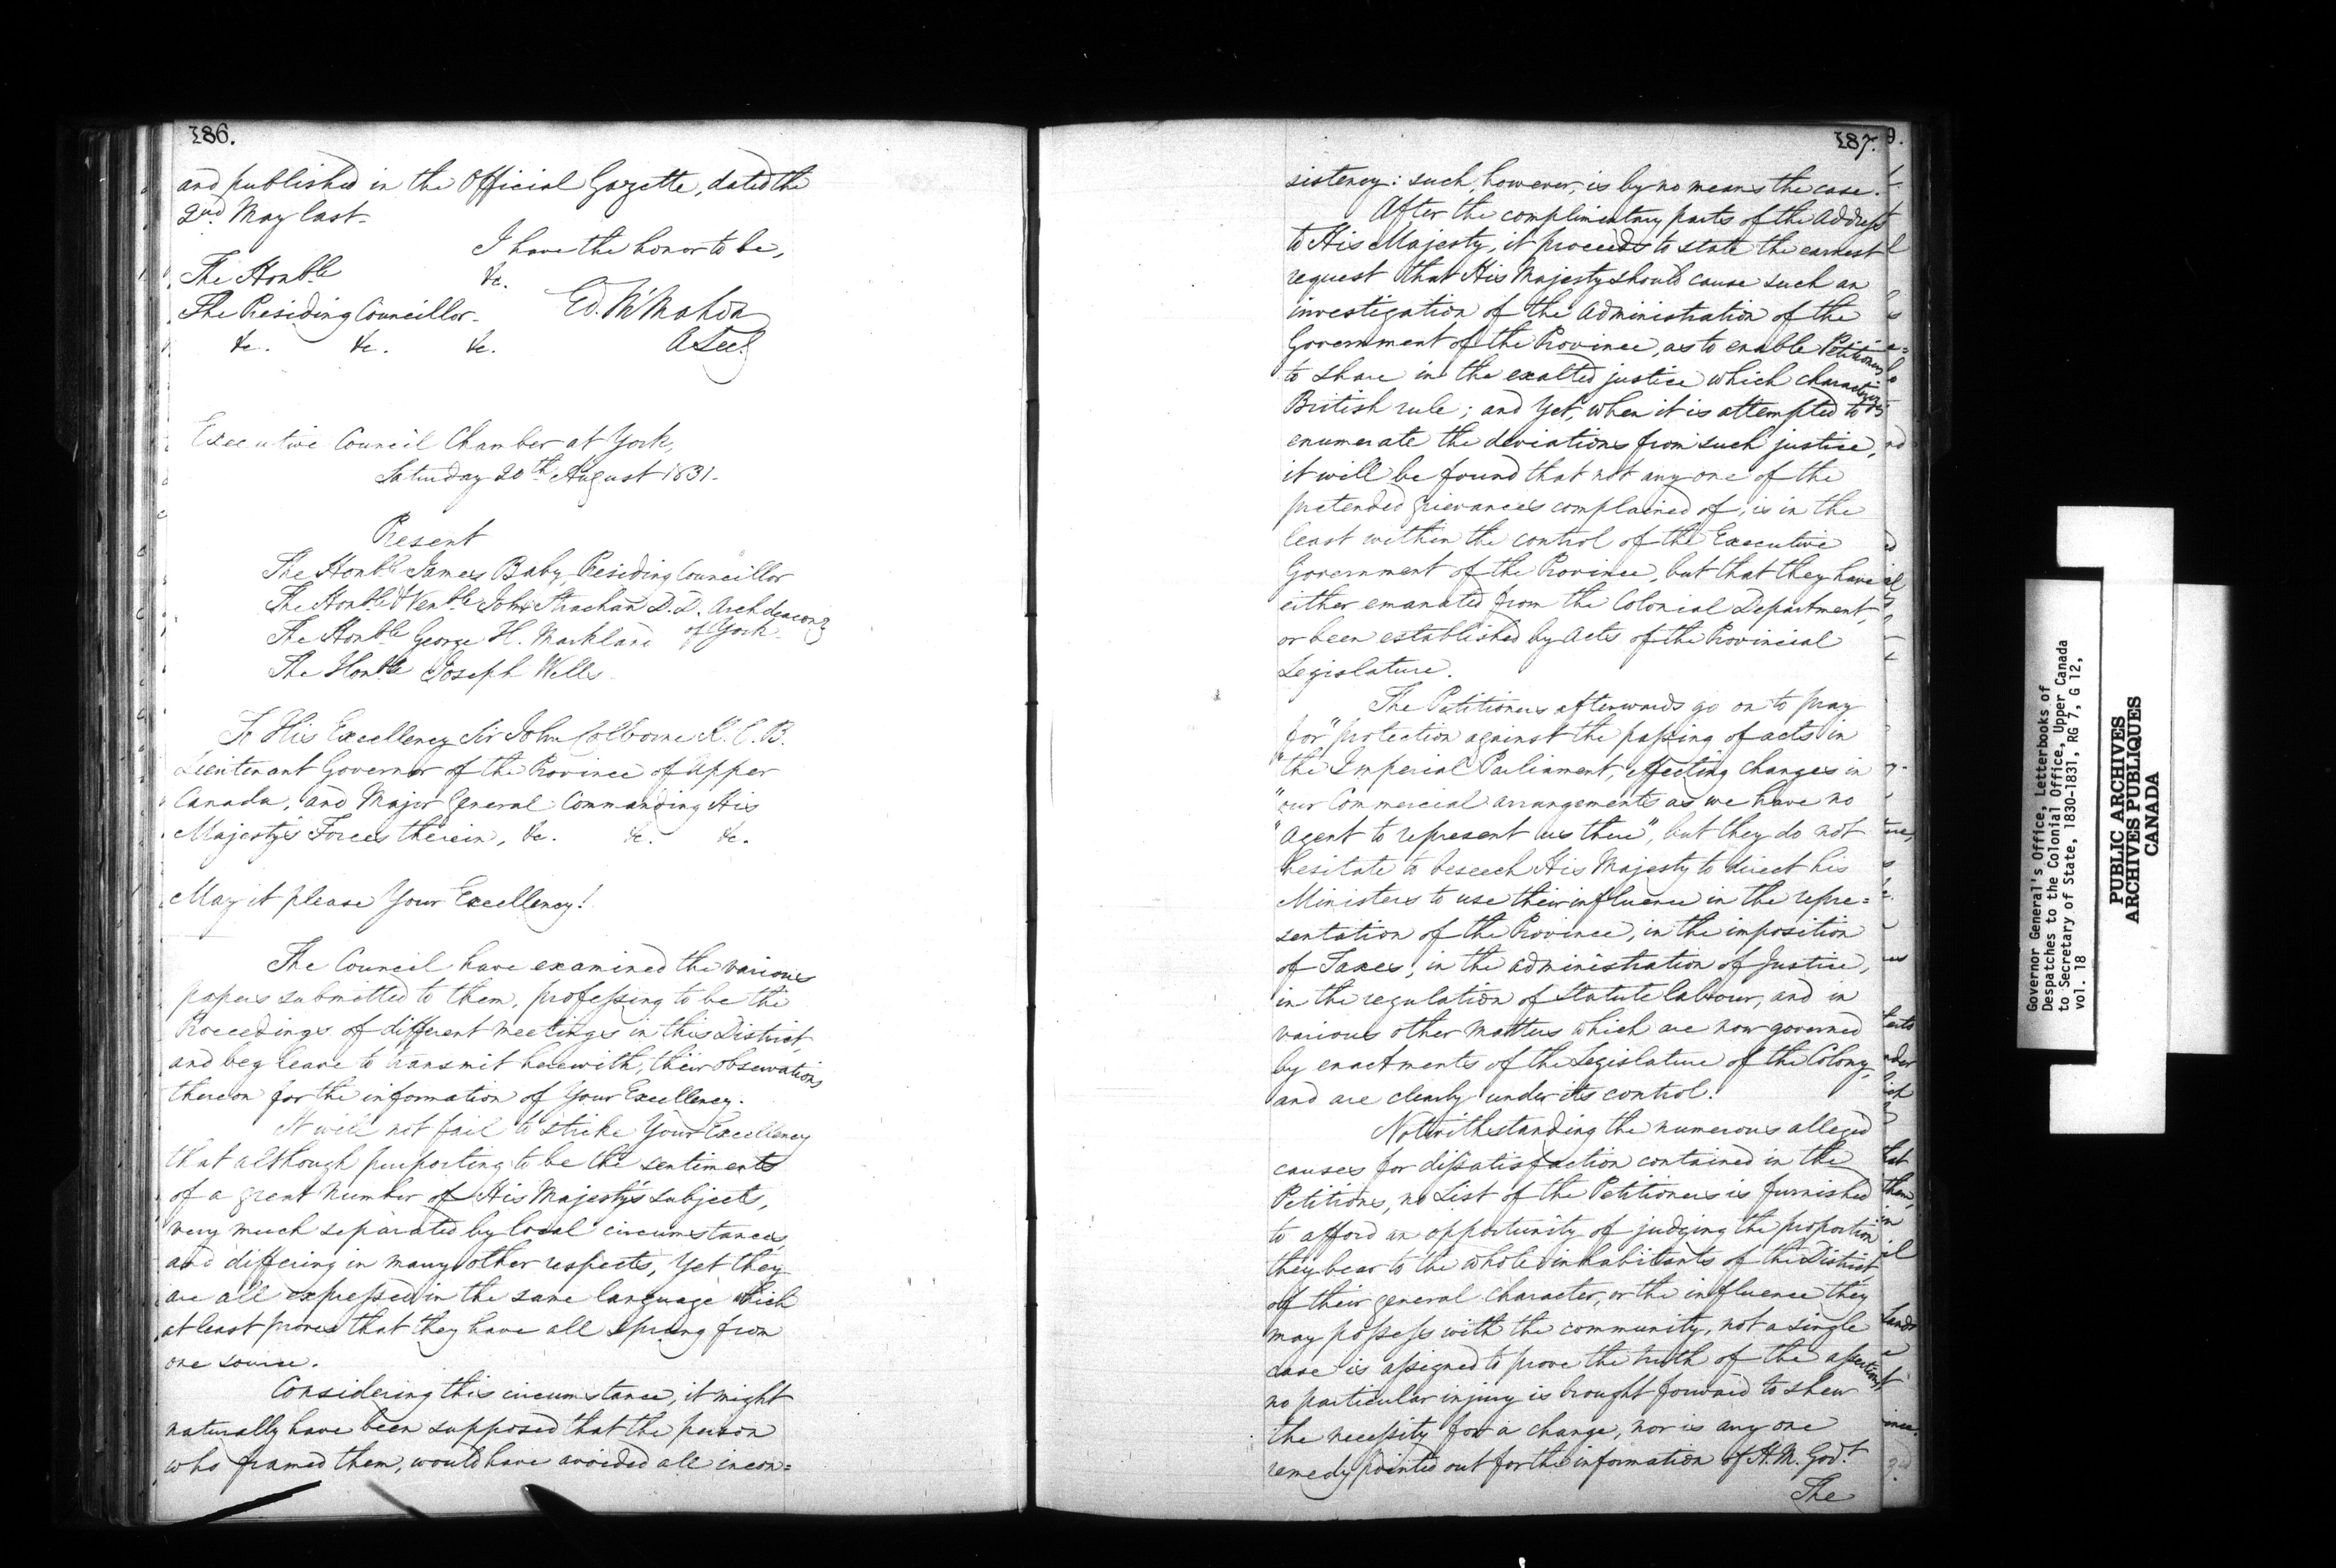 186.
and published in the Official Gazette, dated the
2nd May last-
I have the honor to be,
The Honble &c.
The Presiding Councillor- Ed. McMahon
&c. &c. &c. A Secy
Executive Council Chamber at York,
Saturday 20th August 1831-
Present
The Honble James Baby, Presiding Councillor
The Honble & Venble John Strachan D.D. Archdeacon
of York
The Honble George H. Markland
The Honble Joseph Wells
To His Excellency Sir John Colborne K.C.B.
Lieutenant Governor of the Province of Upper
Canada, and Major General Commanding His
Majesty's Forces therein, &c. &c. &c.
May it please Your Excellency!
The Council have examined the various
papers submitted to them, professing to be the
Proceedings of different meetings in this District,
and beg leave to transmit herewith, their observations
thereon for the information of Your Excellency.
It will not fail to strike Your Excellency
that although purporting to be the sentiments
of a great number of His Majesty's subjects,
very much separated by local circumstances
and differing in many other respects, yet they
are all expressed in the same language which
at least proves that they have all sprung from
one source.
Considering this circumstance, it might
naturally have been supposed that the person
who framed them, would have avoided all incon=
187.
sistency: such, however, is by no means the case.
After the complimentary parts of the Address
to His Majesty, it proceeds to state the earnest
request that His Majesty should cause such an
investigation of the Administration of the
Government of the Province, as to enable Petitioners
to share in the exalted justice which characterizes
British rule; and yet, when it is attempted to
enumerate the deviations from such justice,
it will be found that not any one of the
pretended grievances complained of, is in the
least within the control of the Executive
Government of the Province, but that they have
either emanated from the Colonial Department,
or been established by Acts of the Provincial
Legislature.
The Petitioners afterwards go on to pray
for "protection against the passing of acts in
"the Imperial Parliament, effecting changes in
"our Commercial arrangements as we have no
"Agent to represent us there", but they do not
hesitate to beseech His Majesty to direct his
Ministers to use their influence in the repre=
sentation of the Province, in the imposition
of Taxes, in the administration of Justice,
in the regulation of Statute labour, and in
various other matters which are now governed
by enactments of the Legislature of the Colony,
and are clearly under its control.
Notwithstanding the numerous alleged
causes for dissatisfaction contained in the
Petitions, no List of the Petitioners is furnished
to afford an opportunity of judging the proportion
they bear to the whole inhabitants of the District,
of their general character, or the influence they
may possess with the community, not a single
case is assigned to prove the truth of the assertions
no particular injury is brought forward to shew
the necessity for a change, nor is any one
remedy pointed out for the information of H.M. Govt.
The
Governor General's Office, Letterbooks of
Despatches to the Colonial Office, Upper Canada
to Secretary of State, 1830-1831, RG 7, G 12,
vol. 18
PUBLIC ARCHIVES
ARCHIVES PUBLIQUES
CANADA